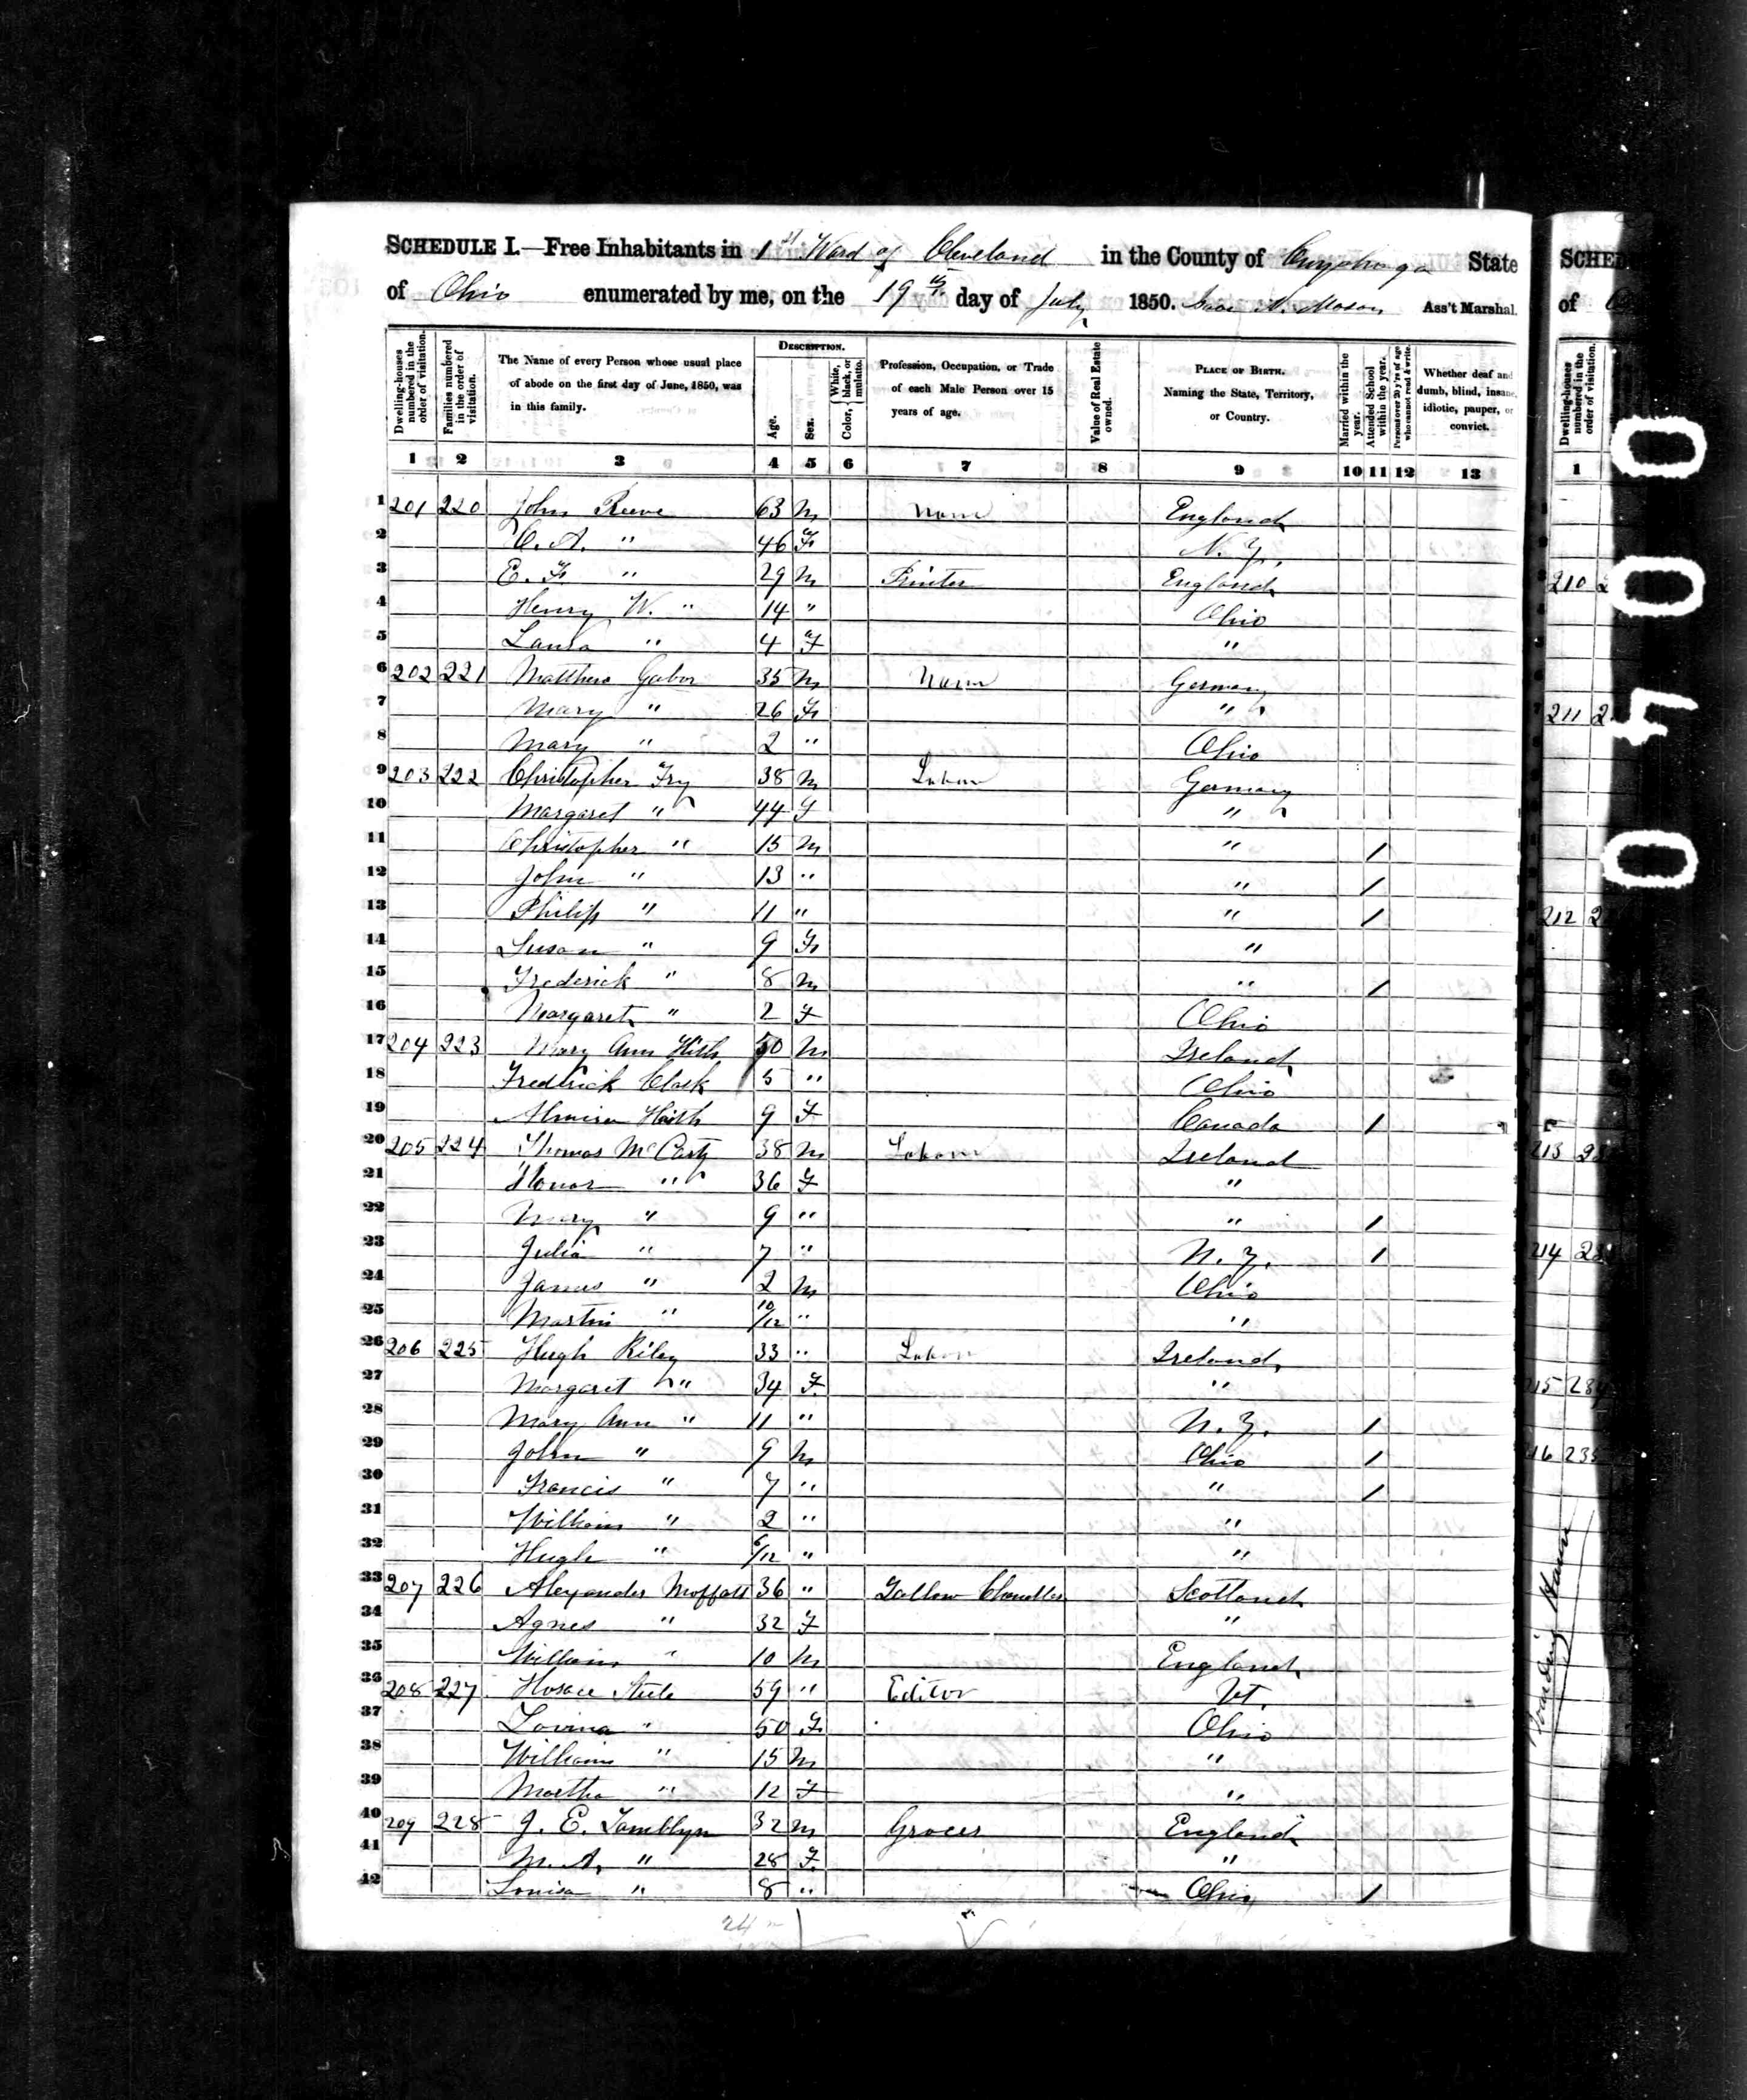 SCHEDULE I.—Free Inhabitants in 1st Ward of Cleveland in the County of Cuyahoga State
of Ohio enumerated by me, on the 19th day of July 1850. Isaac N. Mason Ass't Marshal.
Dwelling-houses numbered in the order of visitation.
Families numbered in the order of visitation.
The Name of every Person whose usual place of abode on the first day of June, 1850, was in this family.
DESCRIPTION.
Age.
Sex.
Color, White, black, or mulatto.
Profession, Occupation, or Trade of each Male Person over 15 years of age.
Value of Real Estate owned.
PLACE OF BIRTH. Naming the State, Territory, or Country.
Married within the year.
Attended School within the year.
Persons over 20 y'rs of age who cannot read & write.
Whether deaf and dumb, blind, insane, idiotic, pauper, or convict.
1 2 3 4 5 6 7 8 9 10 11 12 13
1 201 220 John Reeve 63 M None England
2 C. A. " 46 F N. Y.
3 E. F. " 29 M Printer England
4 Henry W. " 14 " Ohio
5 Laura " 4 F "
6 202 221 Matthew Gabor 35 M None Germany
7 Mary " 26 F "
8 Mary " 2 " Ohio
9 203 222 Christopher Fry 38 M Labor Germany
10 Margaret " 44 F "
11 Christopher " 15 M " /
12 John " 13 " " /
13 Philip " 11 " " /
14 Susan " 9 F "
15 Frederick " 8 M " /
16 Margaret " 2 F Ohio
17 204 223 Mary Ann 50 M Ireland
18 Fredrick Clark 5 " Ohio
19 Almira 9 F Canada /
20 205 224 Thomas McCarty 38 M Labor Ireland
21 Honor " 36 F "
22 Mary " 9 " " /
23 Julia " 7 " N. Y. /
24 James " 2 M Ohio
25 Martin " 10/12 " "
26 206 225 Hugh Riley 33 " Labor Ireland
27 Margaret " 34 F "
28 Mary Ann " 11 " N. Y. /
29 John " 9 M Ohio /
30 Francis " 7 " " /
31 William " 2 " "
32 Hugh " 6/12 " "
33 207 226 Alexander Moffatt 36 " Tallow Chandler Scotland
34 Agnes " 32 F "
35 William " 10 M England
36 208 227 Horace Steele 59 " Editor Vt.
37 Lovina " 50 F Ohio
38 William " 15 M "
39 Martha " 12 F "
40 209 228 J. E. Tamblyn 32 M Grocer England
41 M. A. " 28 F "
42 Louisa " 8 " Ohio /
24
SCHED
of
Dwelling-houses numbered in the order of visitation.
1
210 2
211 2
212 2
213
214
215
216 235
00400